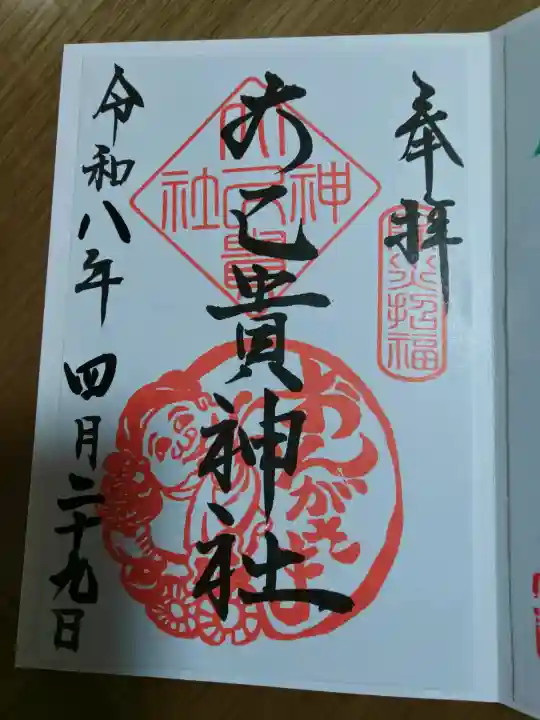 奉拝
招福
大己貴神社
神社
おんがさま
令和八年四月二十九日